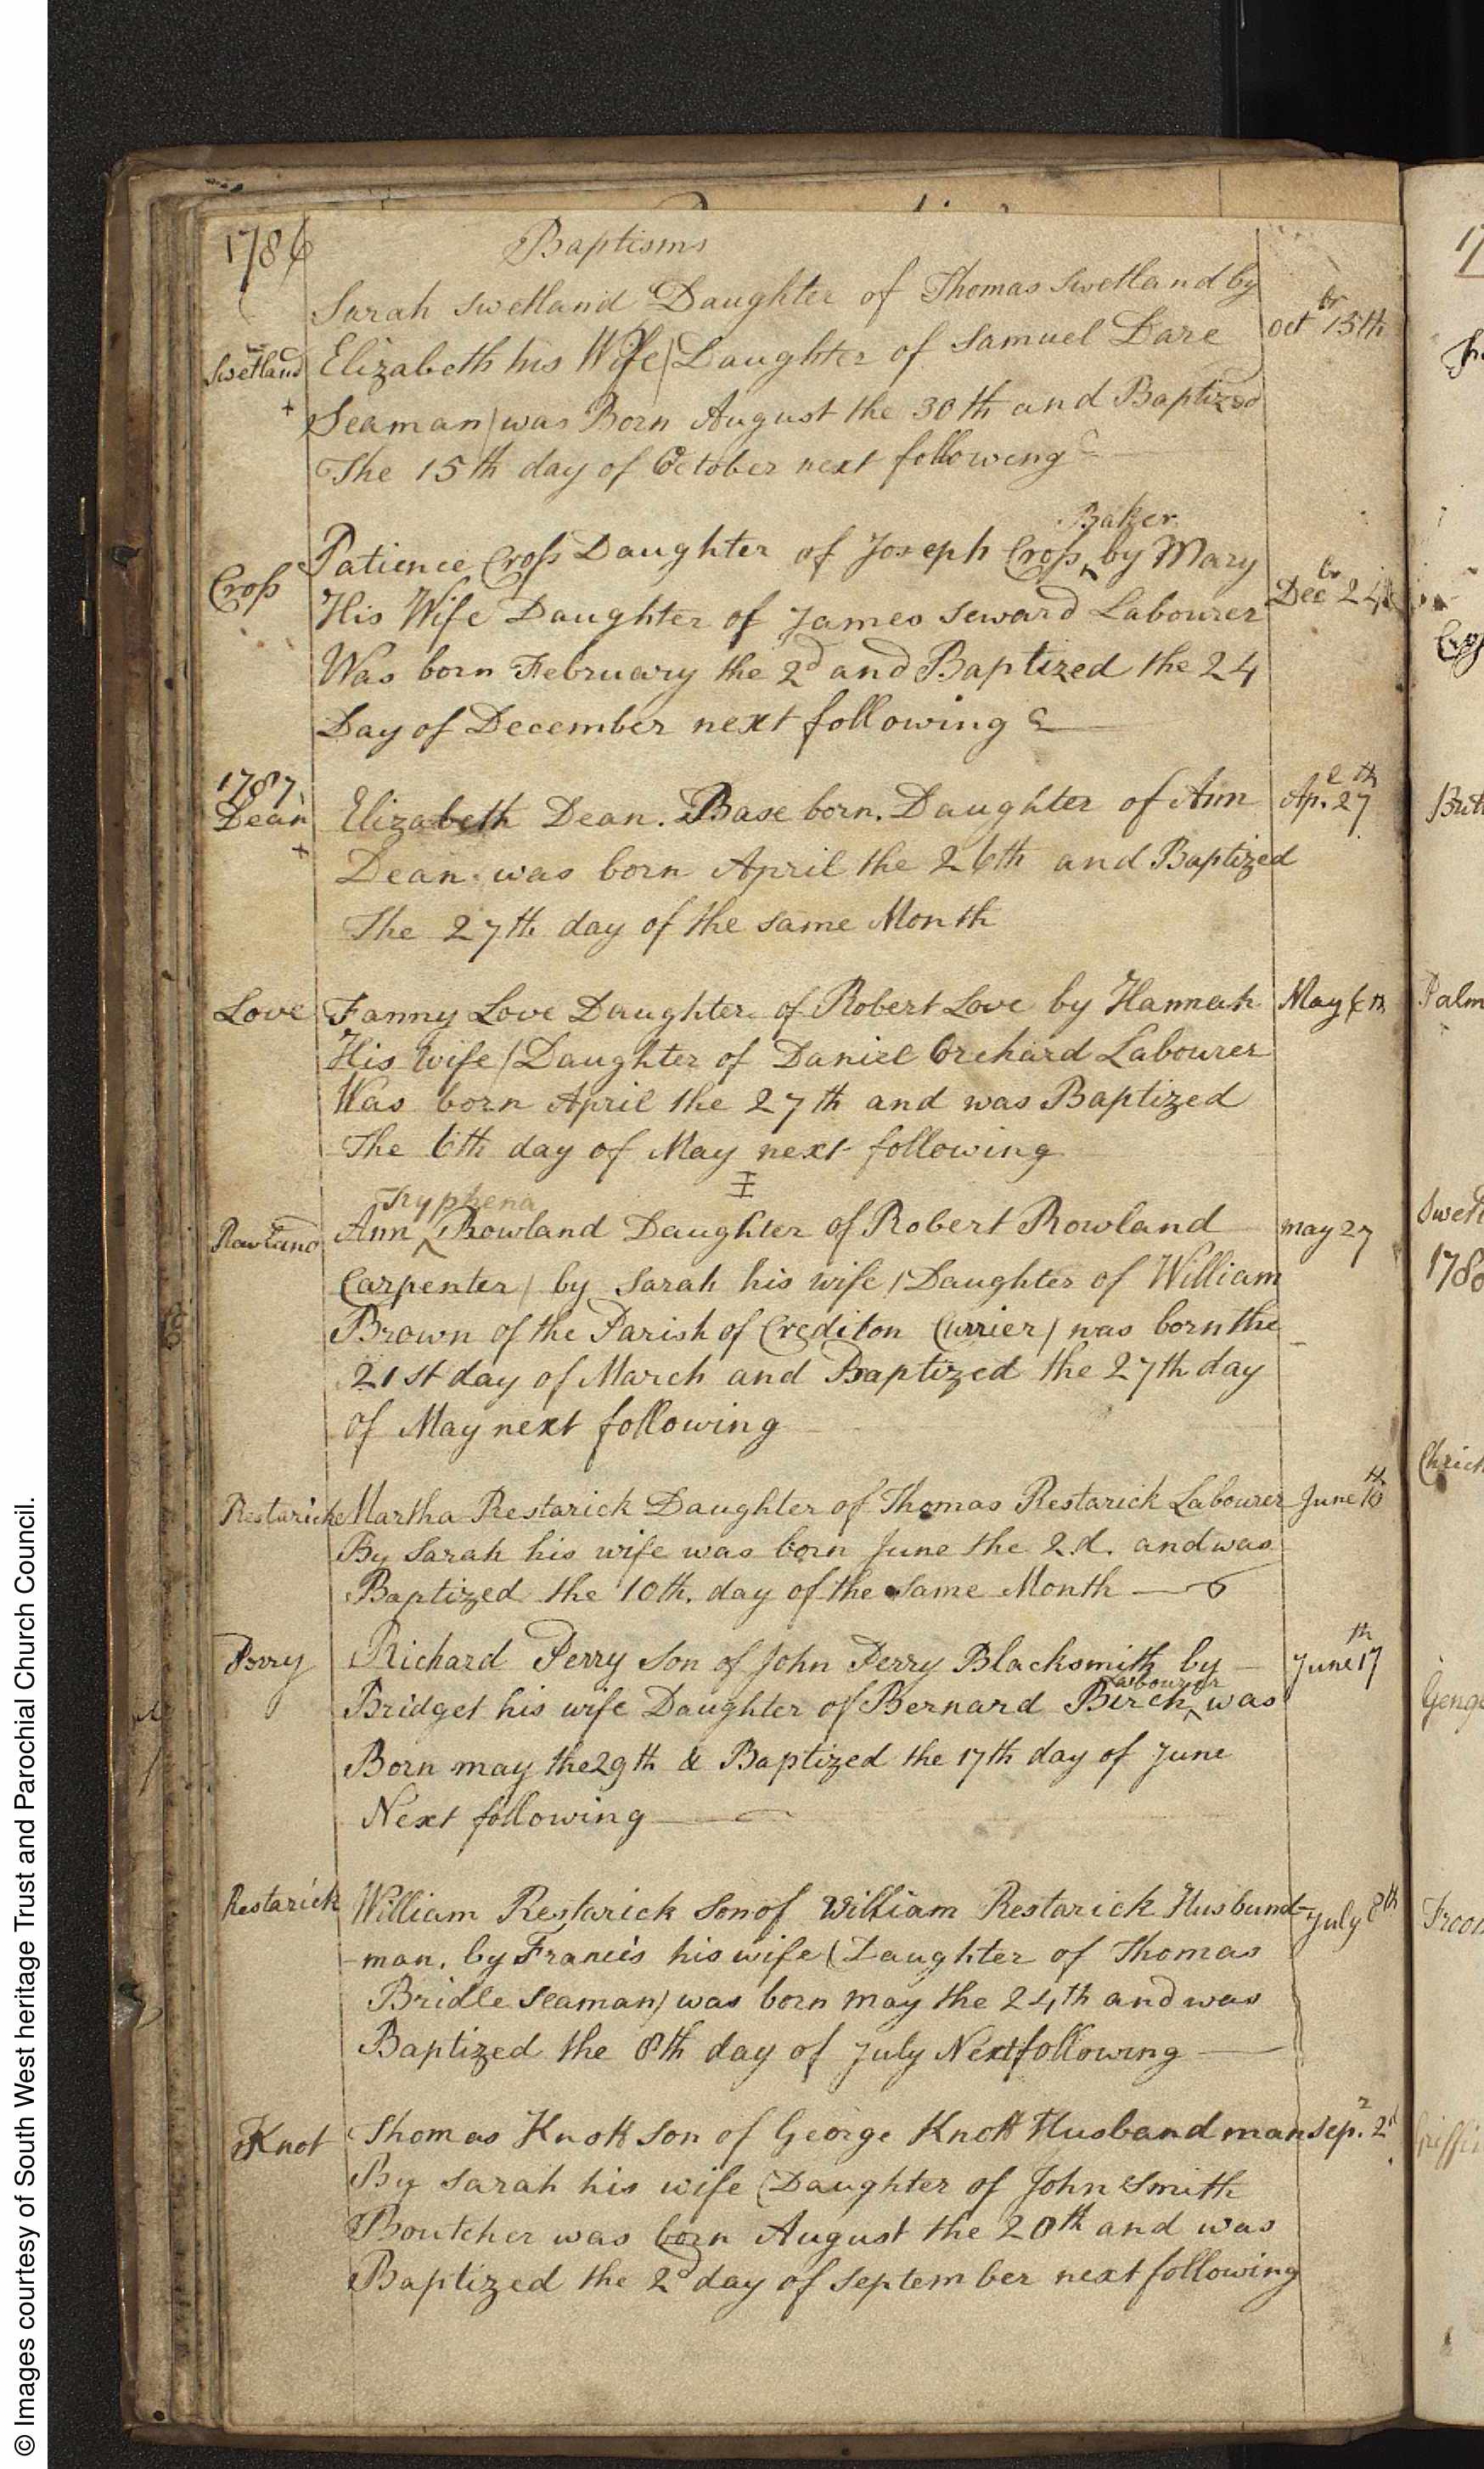 1786
Baptisms
Sarah Swetland Daughter of Thomas Swetland by
Swetland
Elizabeth his Wife/Daughter of Samuel Dare
Oct br 15th
+
Seaman/was Born August the 30th and Baptized
The 15th day of October next following
Baker
Cross
Patience Cross Daughter of Joseph Cross ^ by Mary
Decbr 24th
His Wife Daughter of James Seward Labourer
Was born February the 2d and Baptized the 24
Day of December next following
1787
Dean
+
Elizabeth Dean. Base born. Daughter of Ann
Apl. 27th
Dean. was born April the 26th and Baptized
The 27th day of the same Month
Love
Fanny Love Daughter of Robert Love by Hannah
May 6th
His Wife/Daughter of Daniel Orchard Labourer
Was born April the 27th and was Baptized
The 6th day of May next following
Tryphena
Rowland
Ann ^ Rowland Daughter of Robert Rowland
may 27
Carpenter/ by Sarah his wife/Daughter of William
Brown of the Parish of Crediton Currier/ was born the
21st day of March and Baptized the 27th day
of May next following
Restarick
Martha Restarick Daughter of Thomas Restarick Labourer
June 10th
By Sarah his wife was born June the 2.d. and was
Baptized the 10th. day of the same Month
Perry
Richard Perry Son of John Perry Blacksmith by
June 17th
Labourer
Bridget his wife Daughter of Bernard Birch ^ was
Born may the 29th & Baptized the 17th day of June
Next following
Restarick
William Restarick Son of William Restarick Husband-
July 8th
-man. by Francis his wife (Daughter of Thomas
Bridle Seaman) was born may the 24th and was
Baptized the 8th day of July Next following
Knot
Thomas Knott Son of George Knott Husbandman
Sepr. 2d
By Sarah his wife (Daughter of John Smith
Boutcher was born August the 20th and was
Baptized the 2d day of September next following
17
Palm
Swetl
178
Geng
Froom
Griffi
© Images courtesy of South West heritage Trust and Parochial Church Council.